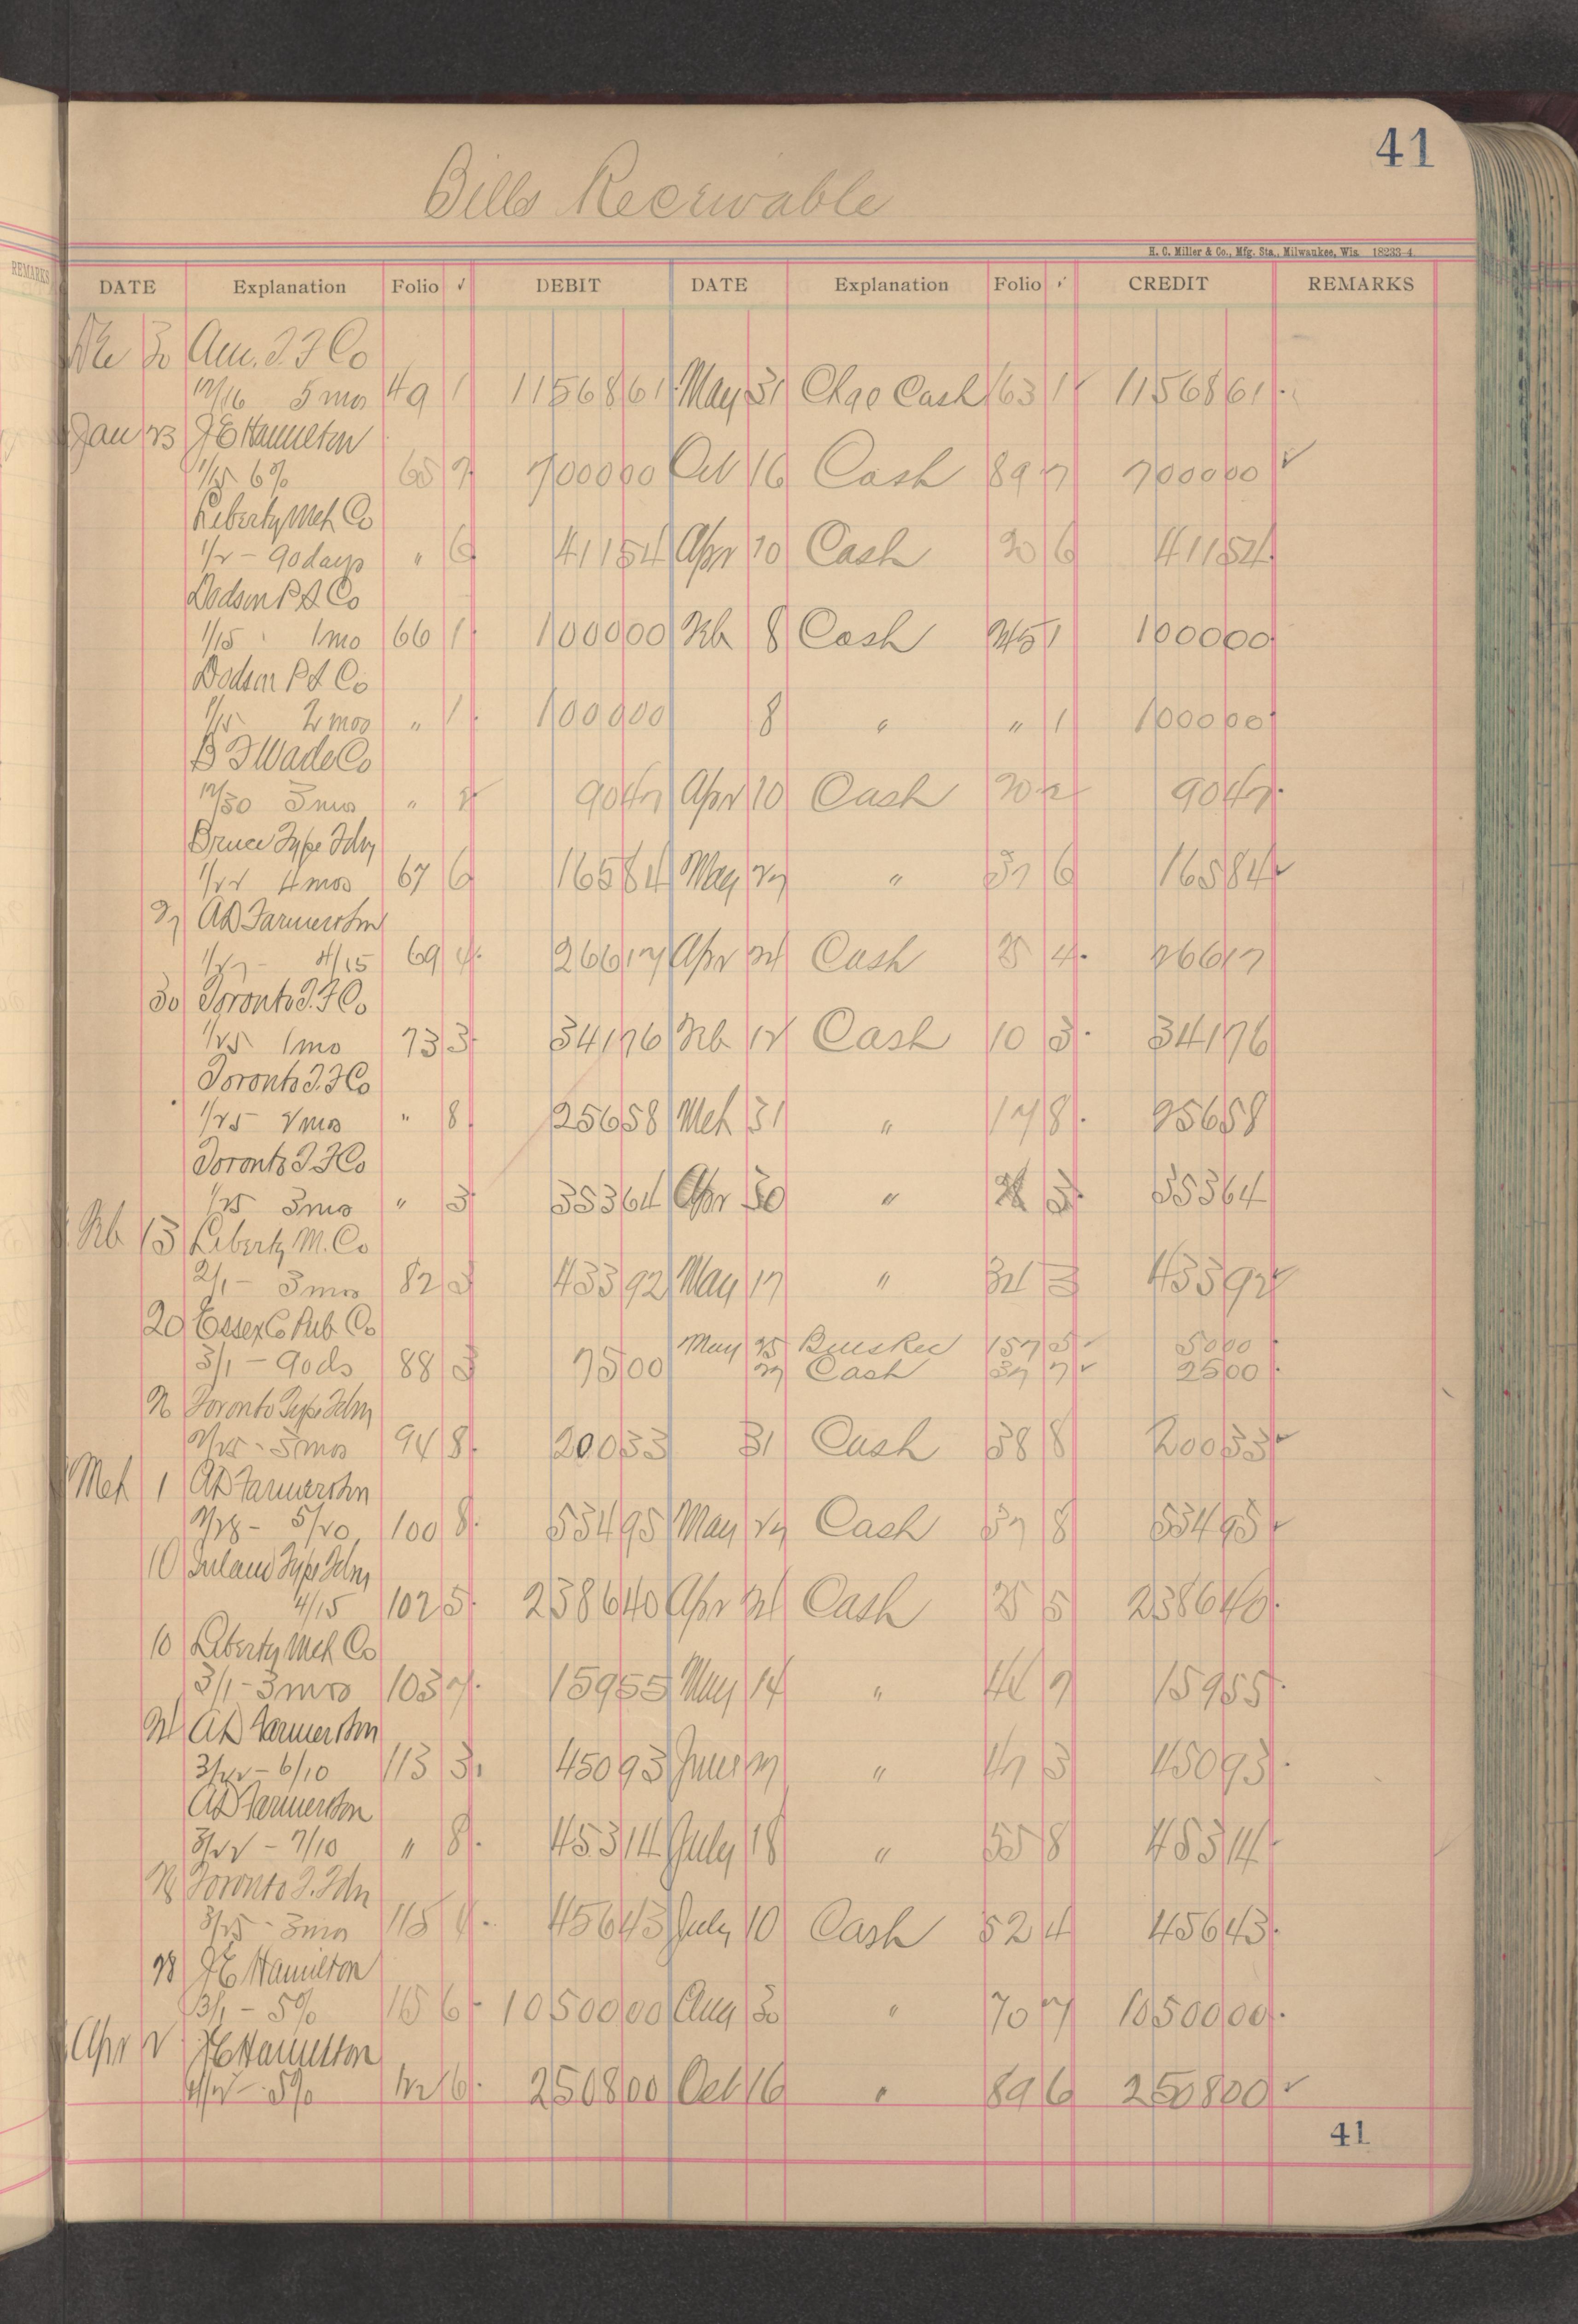 41
Bills Receivable
H. C. Miller & Co., Mfg. Sta., Milwaukee, Wis. 18233-4
REMARKS
DATE Explanation Folio ✓ DEBIT DATE Explanation Folio ✓ CREDIT REMARKS
30 Am. T. F Co
12/16 5 mos 49 1 1156861 May 31 Chge Cash 163 1 ✓ 1156861
Jan 23 J E Hamilton
1/15 6% 65 7 700000 Oct 16 Cash 89 7 700000 ✓
Liberty Mch Co
1/2 - 90 days " 6 41154 Apr 10 Cash 20 6 41154
Dodson P S Co
1/15 1 mo 66 1 100000 Feb 8 Cash 1 100000
Dodson P S Co
1/15 2 mos " 1 100000 8 " " 1 100000
B F Wade Co
12/30 3 mos " 2 9047 Apr 10 Cash 20 2 9047
Bruce Type Fdry
1/22 4 mos 67 6 16584 May 27 " 37 6 16584 ✓
27 A D Farmer & Son
1/27 - 4/15 69 4 26617 Apr 24 Cash 25 4 26617
30 Toronto T. F Co
1/25 1 mo 73 3 34176 Feb 12 Cash 10 3 34176
Toronto T. F Co
1/25 2 mos " 8 25658 Mch 31 " 17 8 25658
Toronto T. F Co
1/25 3 mos " 3 35364 Apr 30 " 3 35364
Feb 13 Liberty M. Co
2/1 - 3 mos 82 3 43392 May 17 " 34 3 43392 ✓
20 Essex Co Pub Co
May 25 157 5 ✓ 5000
3/1 - 90 ds 88 3 7500 27 Cash 37 7 ✓ 2500
26 Toronto Type Fdry
2/25 - 3 mos 94 8 20033 31 Cash 38 8 20033 ✓
Mch 1 A D Farmer & Son
2/28 - 5/20 100 8 53495 May 27 Cash 37 8 53495 ✓
10 Inland Type Fdry
4/15 102 5 238640 Apr 24 Cash 25 5 238640
10 Liberty Mch Co
3/1 - 3 mos 103 7 15955 May 14 " 7 15955
24 A D Farmer & Son
3/22 - 6/10 113 3 45093 June 27 " 47 3 45093
A D Farmer & Son
3/22 - 7/10 " 8 45314 July 18 " 55 8 45314
28 Toronto T. Fdry
3/25 - 3 mos 115 4 45643 July 10 Cash 52 4 45643
28 J E Hamilton
3/1 - 5% 115 6 1050000 Aug 30 " 70 7 1050000
Apr 2 J E Hamilton
4/2 - 5% 122 6 250800 Oct 16 " 89 6 250800 ✓
41